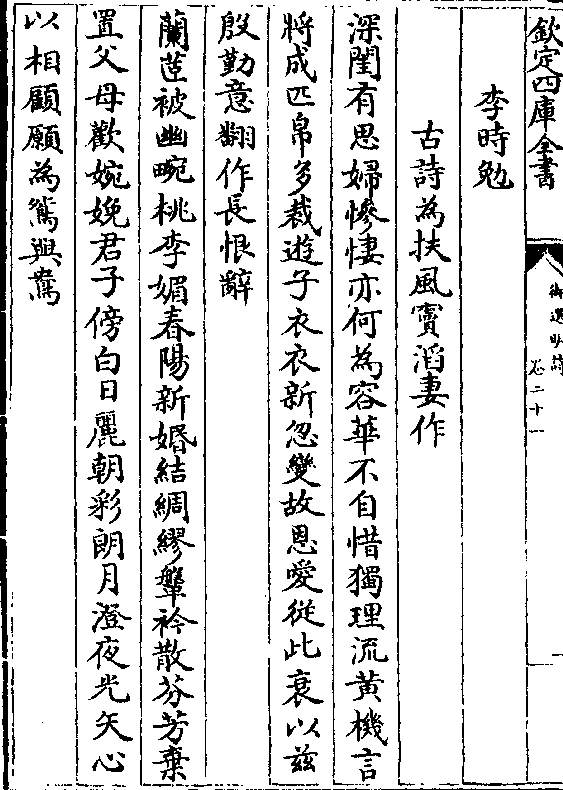 欽定四庫全書
御選明詩
卷二十一
李時勉
古詩為扶風竇滔妻作
深閨有思婦慘悽亦何為容華不自惜獨理流黃機言
將成匹帛多裁遊子衣衣新忽變故恩愛從此衰以茲
殷勤意翻作長恨辭
蘭茝被幽畹桃李媚春陽新婚結綢繆鞶衿散芬芳棄
置父母歡婉娩君子傍白日麗朝彩朗月澄夜光矢心
以相顧願為鴛與鴦